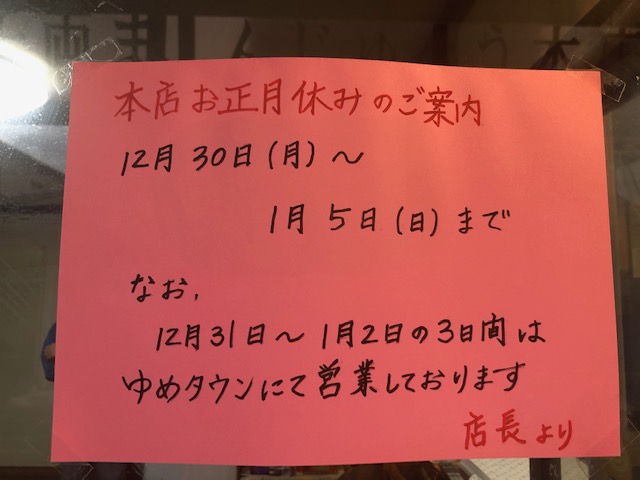 本店お正月休みのご案内
12月30日(月)～
1月5日(日)まで
なお,
12月31日～1月2日の3日間は
ゆめタウンにて営業しております
店長より